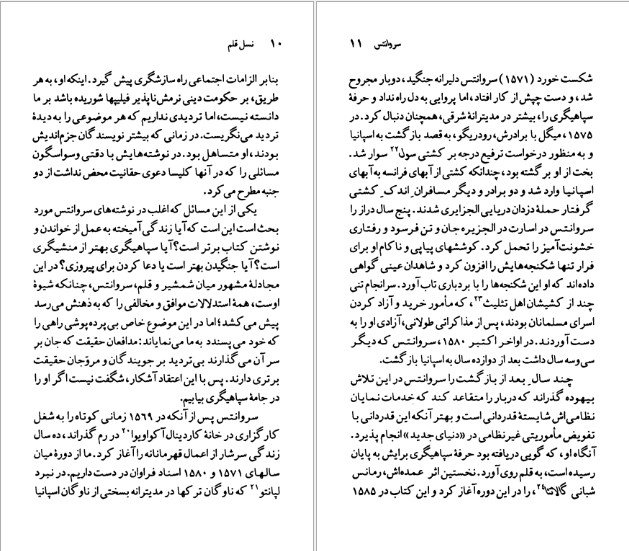 ۱۰ نسل قلم
بنابر الزامات اجتماعی راه سازشگری پیش گیرد. اینکه او، به هر
طریق، بر حکومت دینی نرمش‌ناپذیر فیلیپها شوریده باشد بر ما
دانسته نیست، اما تردیدی نداریم که هر موضوعی را به دیدۀ
تردید می‌نگریست. در زمانی که بیشتر نویسندگان جزم‌اندیش
بودند، او متساهل بود. در نوشته‌هایش با دقتی وسواسگون
مسائلی را که در آنها کلیسا دعوی حقانیت محض نداشت از دو
جنبه مطرح می‌کرد.
یکی از این مسائل که اغلب در نوشته‌های سروانتس مورد
بحث است این است که آیا زندگی آمیخته به عمل از خواندن و
نوشتن کتاب برتر است؟ آیا سپاهیگری بهتر از منشیگری
است؟ آیا جنگیدن بهتر است یا دعا کردن برای پیروزی؟ در این
مجادلۀ مشهور میان شمشیر و قلم، سروانتس، چنانکه شیوۀ
اوست، همۀ استدلالات موافق و مخالفی را که به ذهنش می‌رسد
پیش می‌کشد؛ اما در این موضوع خاص بی‌پرده‌پوشی راهی را
که خود می‌پسندد به ما می‌نمایاند: مدافعان حقیقت که جان بر
سر آن می‌گذارند بی‌تردید بر جویندگان و مروّجان حقیقت
برتری دارند. پس با این اعتقاد آشکار، شگفت نیست اگر او را
در جامۀ سپاهیگری بیابیم.
سروانتس پس از آنکه در ۱۵۶۹ زمانی کوتاه را به شغل
کارگزاری در خانۀ کاردینال آکواویوا۲۰ در رم گذراند، ده سال
زندگی سرشار از اعمال قهرمانانه را آغاز کرد. ما از دورۀ میان
سالهای ۱۵۷۱ و ۱۵۸۰ اسناد فراوان در دست داریم. در نبرد
لپانتو۲۱ که ناوگان ترکها در مدیترانه بسختی از ناوگان اسپانیا
سروانتس ۱۱
شکست خورد (۱۵۷۱) سروانتس دلیرانه جنگید، دوبار مجروح
شد، و دست چپش از کار افتاد، اما پروایی به دل راه نداد و حرفۀ
سپاهیگری را، بیشتر در مدیترانۀ شرقی، همچنان دنبال کرد. در
۱۵۷۵، میگل با برادرش، رودریگو، به قصد بازگشت به اسپانیا
و به منظور درخواست ترفیع درجه بر کشتی سول۲۲ سوار شد.
بخت از او برگشته بود، چندانکه کشتی از آبهای فرانسه به آبهای
اسپانیا وارد شد و دو برادر و دیگر مسافران اندک کشتی
گرفتار حملۀ دزدان دریایی الجزایری شدند. پنج سال دراز را
سروانتس در اسارت در الجزیره جان و تن فرسود و رفتاری
خشونت‌آمیز را تحمل کرد. کوششهای پیاپی و ناکام او برای
فرار تنها شکنجه‌هایش را افزون کرد و شاهدان عینی گواهی
داده‌اند که او این شکنجه‌ها را با بردباری تاب آورد. سرانجام تنی
چند از کشیشان اهل تثلیث۲۳، که مأمور خرید و آزاد کردن
اسرای مسلمانان بودند، پس از مذاکراتی طولانی، آزادی او را به
دست آوردند. در اواخر اکتبر ۱۵۸۰، سروانتس که دیگر
سی‌وسه سال داشت بعد از دوازده سال به اسپانیا بازگشت.
چند سال بعد از بازگشت را سروانتس در این تلاش
بیهوده گذراند که دربار را متقاعد کند که خدمات نمایان
نظامی‌اش شایستۀ قدردانی است و بهتر آنکه این قدردانی با
تفویض مأموریتی غیرنظامی در «دنیای جدید» انجام پذیرد.
آنگاه او، که گویی دریافته بود حرفۀ سپاهیگری برایش به پایان
رسیده است، به قلم روی‌آورد. نخستین اثر عمده‌اش، رمانس
شبانی گالاتئا۲۴، را در این دوره آغاز کرد و این کتاب در ۱۵۸۵